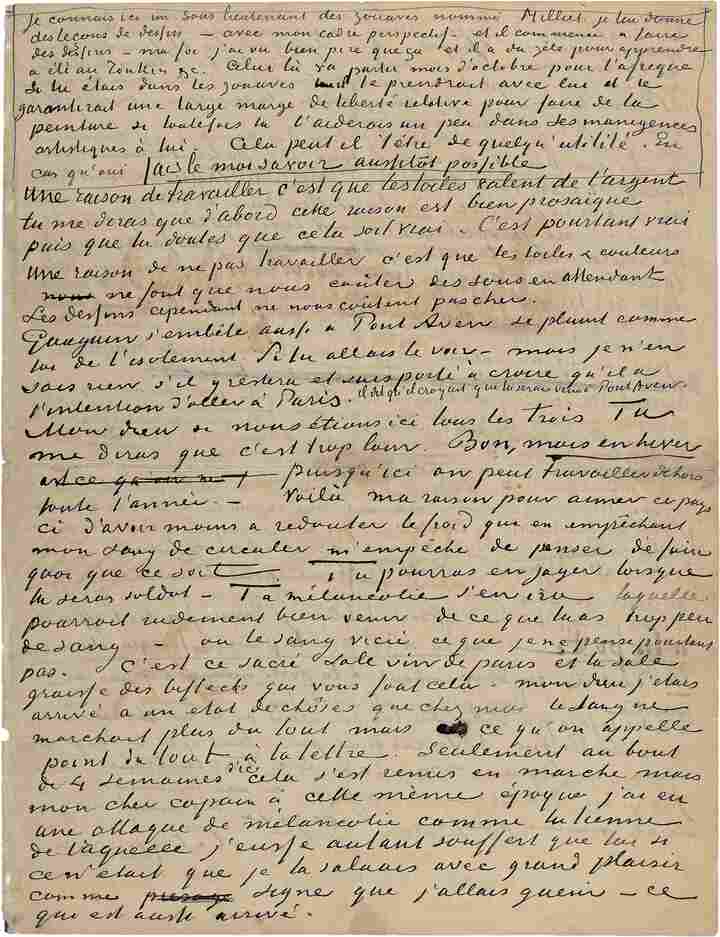 je connais ici un sous lieutenant des zouaves nommé Milliet. je lui donne
des leçons de dessin – avec mon cadre perspectif – et il commence à faire
des dessins – ma foi j'ai vu bien pire que ça et il a du zèle pour apprendre
a été au Tonkin &c. Celui là va partir mois d'octobre pour l'afrique
si tu étais dans les zouaves il te prendrait avec lui et te
garantirait une large marge de liberté relative pour faire de la
peinture si toutefois tu l'aiderais un peu dans ses manigences
artistiques à lui. Cela peut il t'être de quelqu'utilité. En
cas qu'oui fais le moi savoir aussitôt possible
Une raison de travailler c'est que les toiles valent de l'argent
tu me diras que d'abord cette raison est bien prosaique
puis que tu doutes que cela soit vrai. C'est pourtant vrai
Une raison de ne pas travailler c'est que les toiles & couleurs
ne font que nous couter des sous en attendant
Les dessins cependant ne nous coutent pas cher.
Gauguin s'embête aussi à Pont Aven se plaint comme
toi de l'isolement. Si tu allais le voir – mais je n'en
sais rien s'il y restera et suis porté à croire qu'il a
l'intention d'aller à Paris. il dit qu'il croyait que tu serais venu à Pont Aven.
Mon dieu si nous étions ici tous les trois Tu
me diras que c'est trop loin. Bon, mais en hiver
puisqu'ici on peut travailler dehors
toute l'année. – Voilà ma raison pour aimer ce pays
ci d'avoir moins à redouter le froid qui en empêchant
mon sang de circuler m'empêche de penser de faire
quoi que ce soit Tu pourras en juger lorsque
tu seras soldat – Ta mélancolie s'en ira laquelle
pourrait rudement bien venir de ce que tu as trop peu
de sang – ou le sang vicié ce que je ne pense pourtant
pas. C'est ce sacré sale vin de paris et la sale
graisse des biftecks qui vous font cela – mon dieu j'étais
arrivé a un état de choses que chez moi le sang ne
marchait plus du tout mais ce qu'on appelle
point du tout à la lettre. Seulement au bout
de 4 semaines d'ici cela s'est remis en marche mais
mon cher copain à cette même époque j'ai eu
une attaque de mélancolie comme la tienne
de laquelle j'eusse autant souffert que toi si
ce n'était que je la saluais avec grand plaisir
comme signe que j'allais guérir – ce
qui est aussi arrivé.